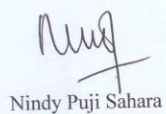 Nindy Puji Sahara